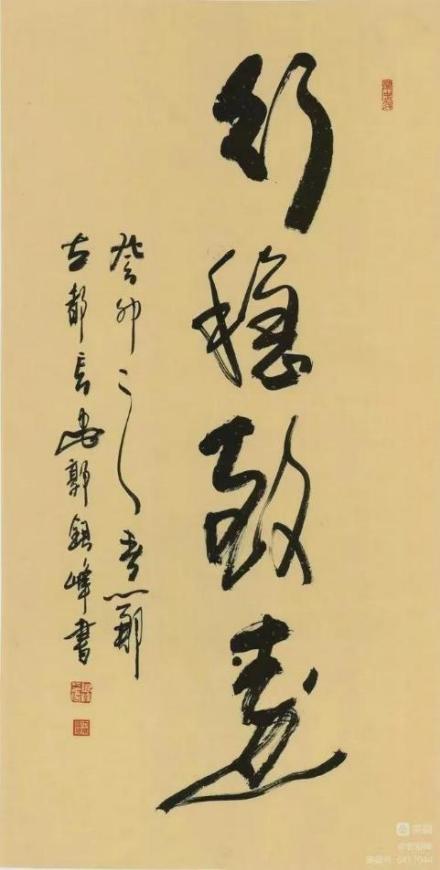 行穩致遠
癸卯之
古都長安郭鎮峰書
美篇